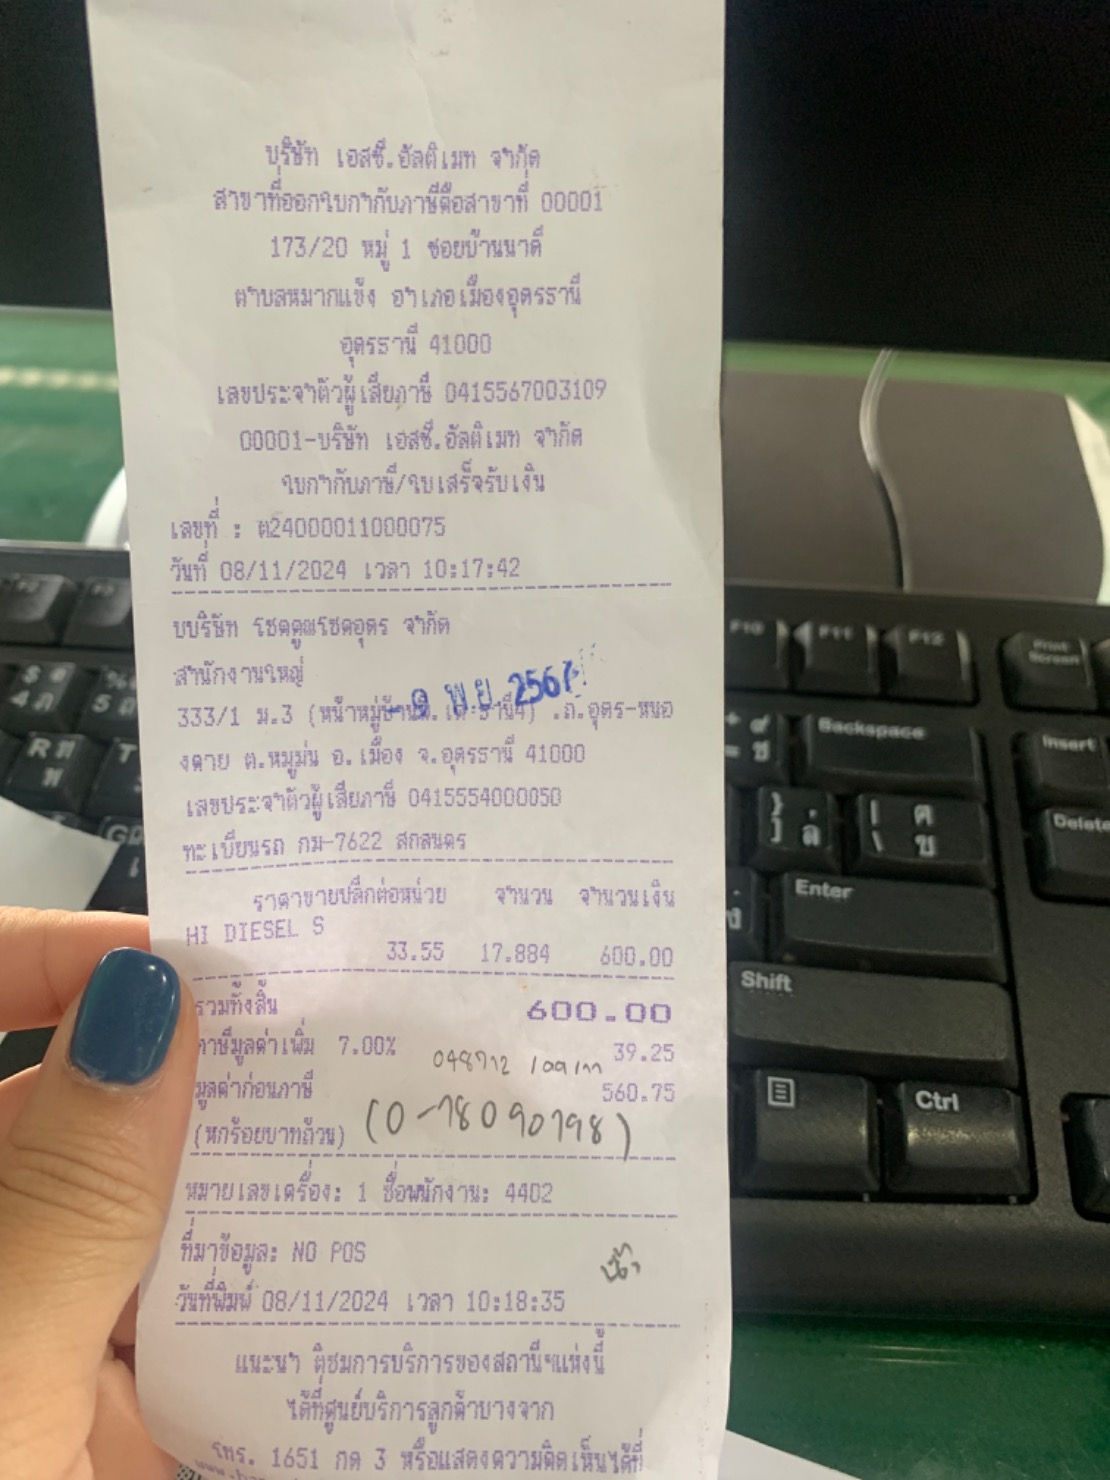 บริษัท เอสซี.อัลติเมท จำกัด
สาขาที่ออกใบกำกับภาษีคือสาขาที่ 00001
173/20 หมู่ 1 ซอยบ้านนาดี
ตำบลหมากแข้ง อำเภอเมืองอุดรธานี
อุดรธานี 41000
เลขประจำตัวผู้เสียภาษี 0415567003109
00001-บริษัท เอสซี.อัลติเมท จำกัด
ใบกำกับภาษี/ใบเสร็จรับเงิน
เลขที่ : ต24000011000075
วันที่ 08/11/2024 เวลา 10:17:42
บบริษัท โชคคูณโชคอุดร จำกัด
สำนักงานใหญ่
- 9 พ.ย. 2567
333/1 ม.3 (หน้าหมู่บ้าน ธานี4) .ถ.อุดร-หนอ
งคาย ต.หมูม่น อ.เมือง จ.อุดรธานี 41000
เลขประจำตัวผู้เสียภาษี 0415554000050
ทะเบียนรถ กม-7622 สกลนคร
ราคาขายปลีกต่อหน่วย จำนวน จำนวนเงิน
HI DIESEL S
33.55 17.884 600.00
รวมทั้งสิ้น 600.00
ภาษีมูลค่าเพิ่ม 7.00% 39.25
048712
มูลค่าก่อนภาษี 560.75
(หกร้อยบาทถ้วน)
หมายเลขเครื่อง: 1 ชื่อพนักงาน: 4402
ที่มาข้อมูล: NO POS
วันที่พิมพ์ 08/11/2024 เวลา 10:18:35
แนะนำ ติชมการบริการของสถานีฯแห่งนี้
ได้ที่ศูนย์บริการลูกค้าบางจาก
โทร. 1651 กด 3 หรือแสดงความคิดเห็นได้ที่
F10 F11 F12 Print Screen
Backspace Insert
Delete
Enter
Shift
Ctrl